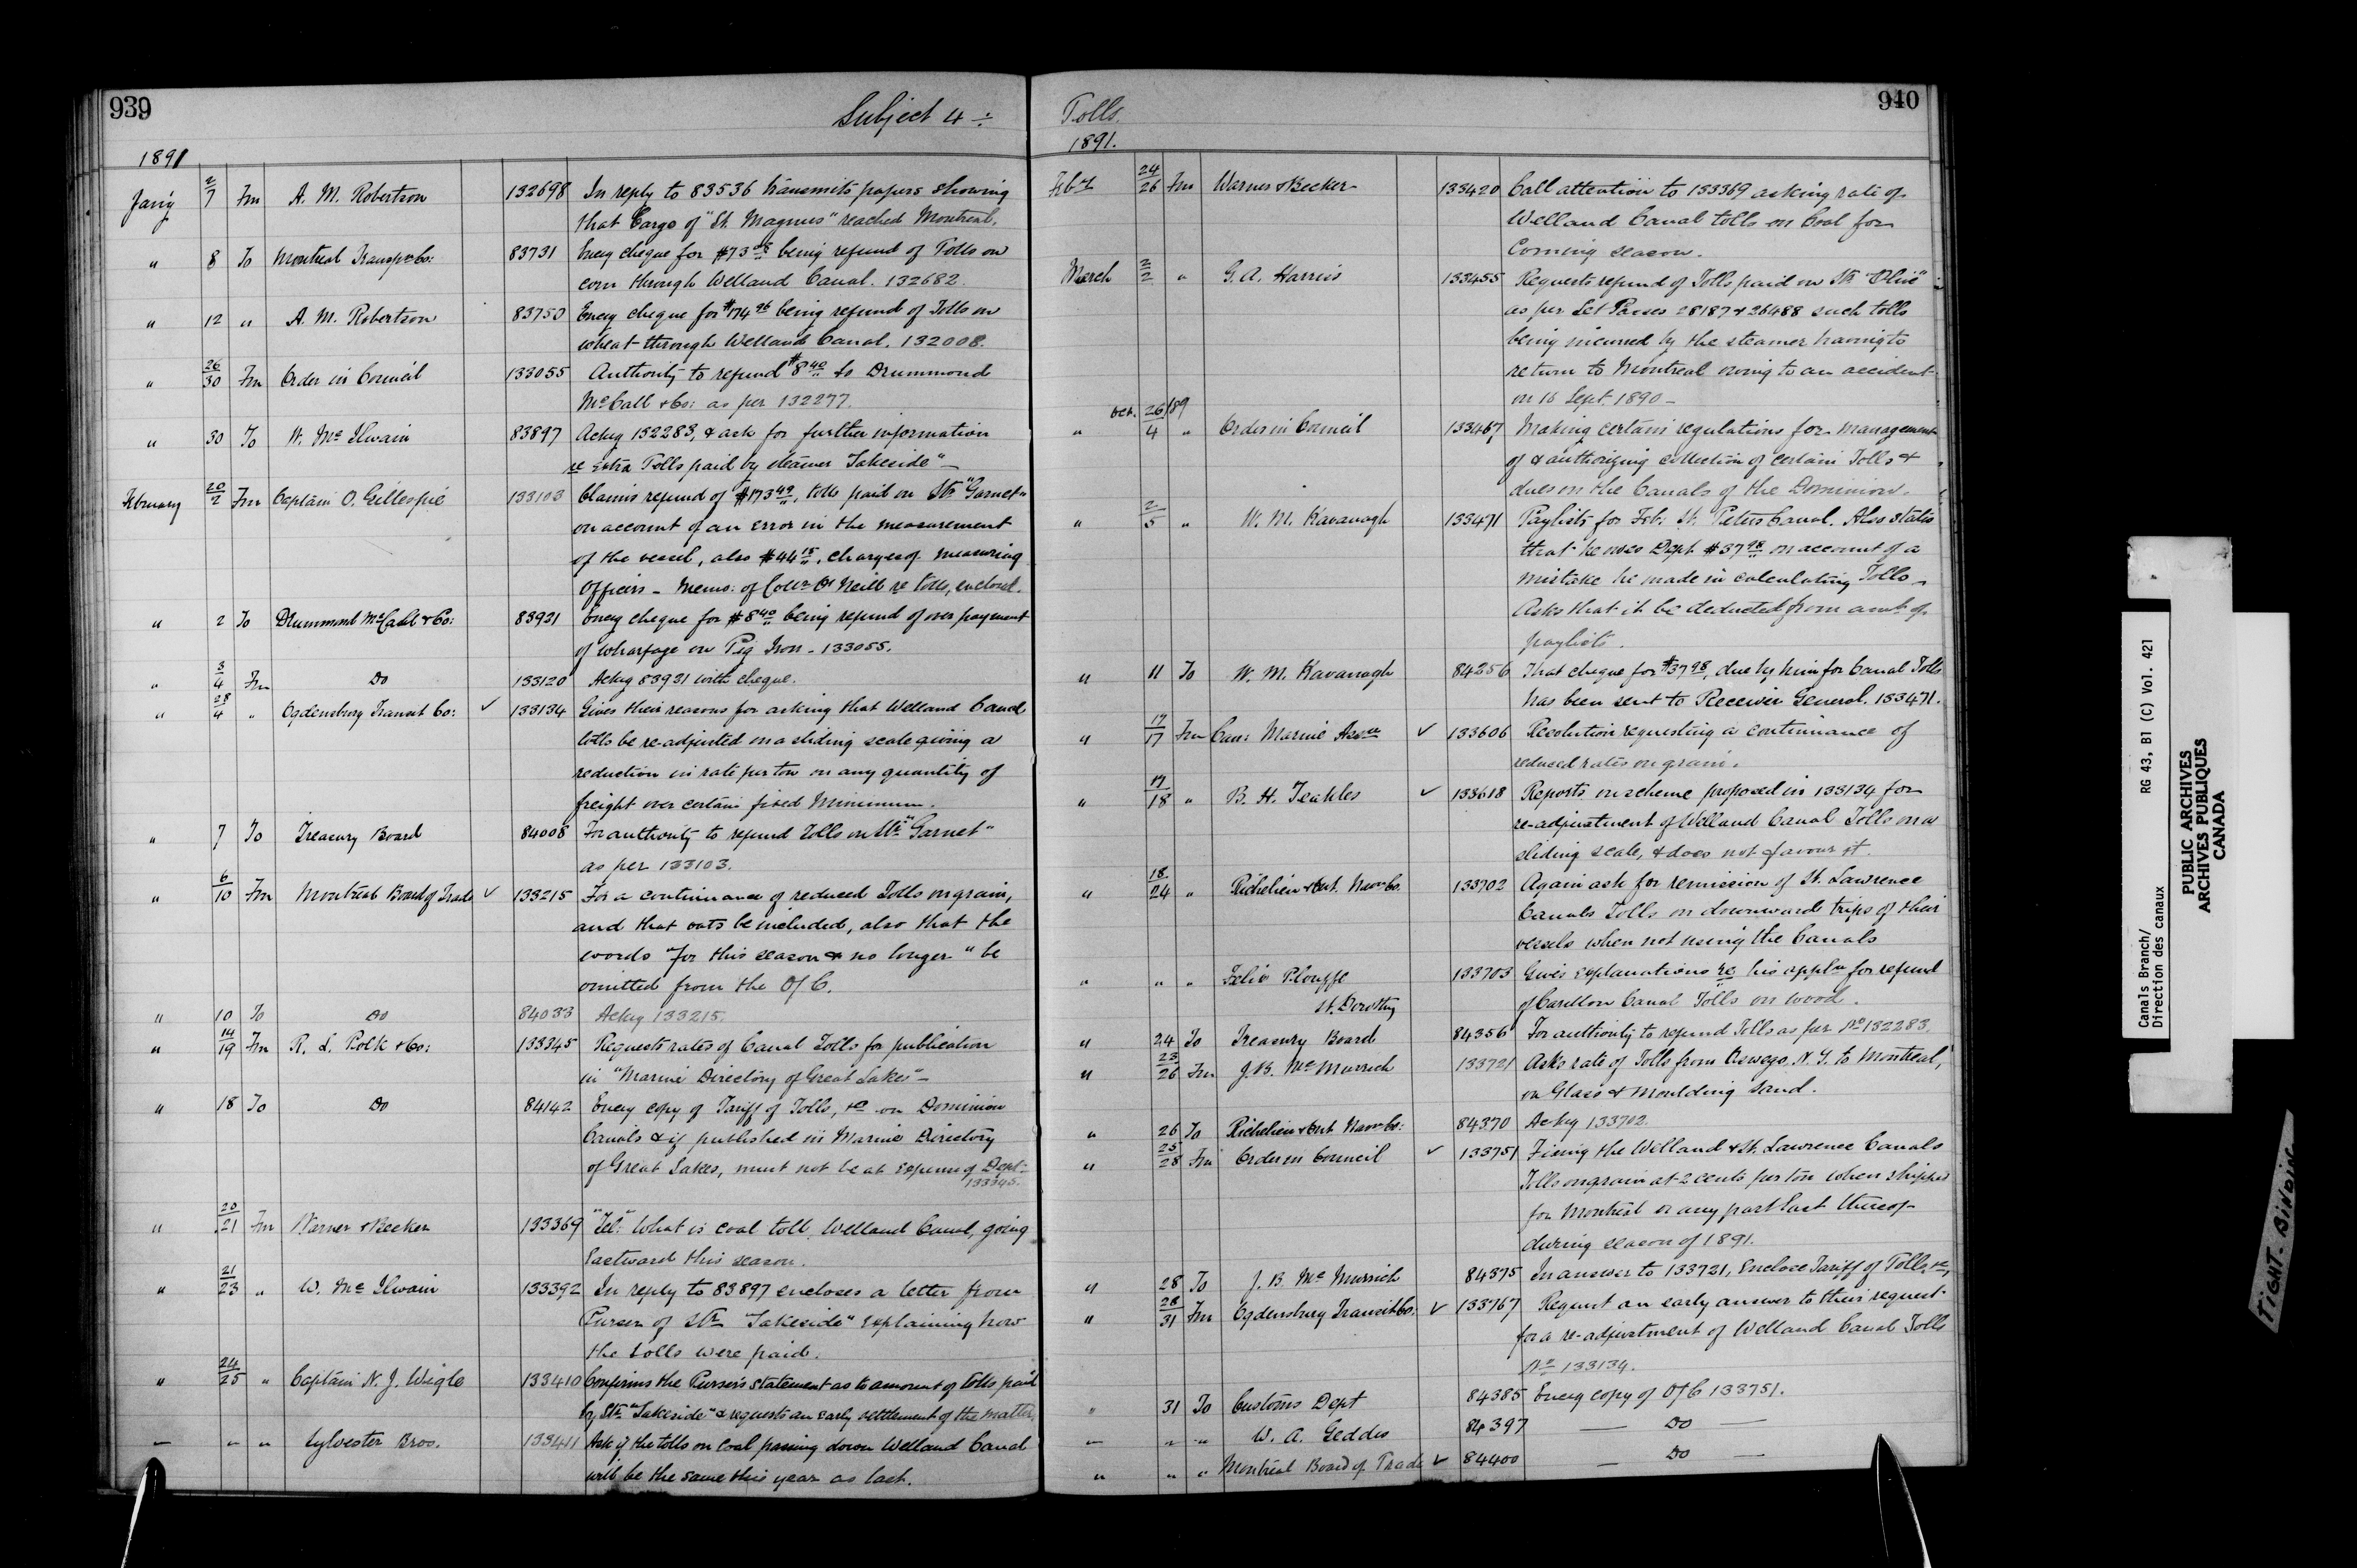 939
Subject 4 ÷
1891
Jan'y 2/7 Fm A. M. Robertson 132698 In reply to 83536 transmits papers showing
that Cargo of "St. Magnus" reached Montreal.
" 8 To Montreal Transpn Co: 83731 Encg cheque for $73 being refund of Tolls on
corn through Welland Canal. 132682.
" 12 " A. M. Robertson 83750 Encg cheque for $174 96 being refund of Tolls on
wheat through Welland Canal. 132008.
" 26/30 Fm Order in Council 133055 Authority to refund $8 40 to Drummond
McCall & Co: as per 132277.
" 30 To W. Mc Ilwain 83897 Ackg 132283, & ask for further information
re extra Tolls paid by steamer "Lakeside" –
February 20/2 Fm Captain O. Gillespie 133103 Claims refund of $173 49, tolls paid on Str "Garnet"
on account of an error in the measurement
of the vessel, also $44 15, charges of measuring
Officers – Memo: of Collr O'Neill re tolls, enclosed.
" 2 To Drummond McCall & Co: 83921 Encg cheque for $8 40 being refund of over payment
of wharfage on Pig Iron – 133055.
" 3/4 Fm Do 133120 Ackg 83921 with cheque.
" 28/4 " Ogdensburg Transit Co: ✓ 133134 Gives their reasons for asking that Welland Canal
tolls be re-adjusted on a sliding scale giving a
reduction in rate per ton on any quantity of
freight over certain fixed Minimum.
" 7 To Treasury Board 84008 For authority to refund Tolls on Str "Garnet"
as per 133103.
" 6/10 Fm Montreal Board of Trade ✓ 133215 For a continuance of reduced Tolls on grain,
and that oats be included, also that the
words "for this season & no longer" be
omitted from the O/C.
" 10 To Do 84033 Ackg 133215.
" 14/19 Fm R. L. Polk & Co: 133345 Requests rates of Canal Tolls for publication
in "Marine Directory of Great Lakes" –
" 18 To Do 84142 Encg copy of Tariff of Tolls, &c on Dominion
Canals & if published in Marine Directory
of Great Lakes, must not be at expense of Dept –
133345.
" 20/21 Fm Warner & Becker 133369 "Tel:" What is coal toll, Welland Canal, going
Eastward this season.
" 21/23 " W. Mc Ilwain 133392 In reply to 83897 encloses a letter from
Purser of Str "Lakeside" explaining how
the tolls were paid.
" 24/25 " Captain N. J. Wigle 133410 Confirms the Purser's statement as to amount of tolls paid
by Str "Lakeside" & requests an early settlement of the matter.
" " " Sylvester Bros. 133411 Ask if the tolls on Coal passing down Welland Canal
will be the same this year as last.
940
Tolls.
1891.
Feby 24/26 Fm Warner & Becker 133420 Call attention to 133369 asking rate of
Welland Canal tolls on Coal for
Coming season.
March 2/2 " G. A. Harris 133455 Requests refund of Tolls paid on Str "Olive"
as per Let Passes 28187 & 26488 such tolls
being incurred by the steamer having to
return to Montreal owing to an accident
on 16 Sept. 1890 –
" Oct. 26/89 4 " Order in Council 133467 Making certain regulations for management
of & authorizing collection of certain Tolls &
dues on the Canals of the Dominion.
" 2/5 " W. M. Kavanagh 133471 Paylists for Feb: St. Peters Canal. Also states
that he owes Dept. $37 98 on account of a
mistake he made in calculating Tolls –
Asks that it be deducted from amt of
paylists.
" 11 To W. M. Kavanagh 84256 That cheque for $37 98, due by him for Canal Tolls
has been sent to Receiver General. 133471.
" 17/17 Fm Can: Marine Assn ✓ 133606 Resolution requesting a continuance of
reduced rates on grain.
" 17/18 " B. H. Teakles ✓ 133618 Reports on scheme proposed in 133134 for
re-adjustment of Welland Canal Tolls on a
sliding scale, & does not favour it.
" 18/24 " Richelieu & Ont. Navn Co. 133702 Again ask for remission of St. Lawrence
Canals Tolls on downward trips of their
vessels when not using the Canals
" " " Felix Plouffe 133703 Gives explanations re his appln for refund
St. Dorothy of Carillon Canal Tolls on wood.
" 24 To Treasury Board 84356 For authority to refund Tolls as per No 132283.
" 23/26 Fm J. B. McMurrich 133721 Asks rate of Tolls from Oswego, N. Y. to Montreal,
on Glass & moulding sand.
" 26 To Richelieu & Ont Navn Co: 84370 Ackg 133702.
" 25/28 Fm Order in Council ✓ 133751 Fixing the Welland & St. Lawrence Canals
Tolls on grain at 2 cents per ton when shipped
for Montreal or any port East thereof
during season of 1891.
" 28 To J. B. McMurrich 84375 In answer to 133721, Enclose Tariff of Tolls &c,
" 28/31 Fm Ogdensburg Transit Co: ✓ 133767 Request an early answer to their request
for a re-adjustment of Welland Canal Tolls
No 133134.
" 31 To Customs Dept 84385 Encg copy of O/C 133751.
" " " W. A. Geddes 84397 — Do —
" " " Montreal Board of Trade ✓ 84400 — Do —
Canals Branch/ RG 43, B1 (C) Vol. 421
Direction des canaux
PUBLIC ARCHIVES
ARCHIVES PUBLIQUES
CANADA
TIGHT BINDING